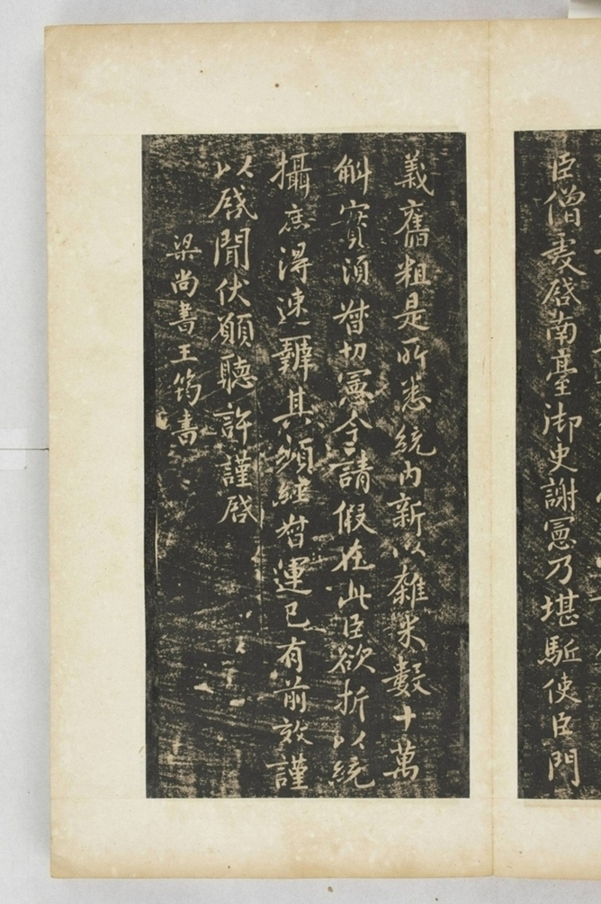 臣僧虔啓南臺御史謝憲乃堪驅使臣門
義舊粗是所悉統內新以雜米數十萬
斛實須督切憲今請假在此臣欲折以統
攝庶得速辦其頻經督運已有前效謹
以啓聞伏願聽許謹啓
梁尚書王筠書